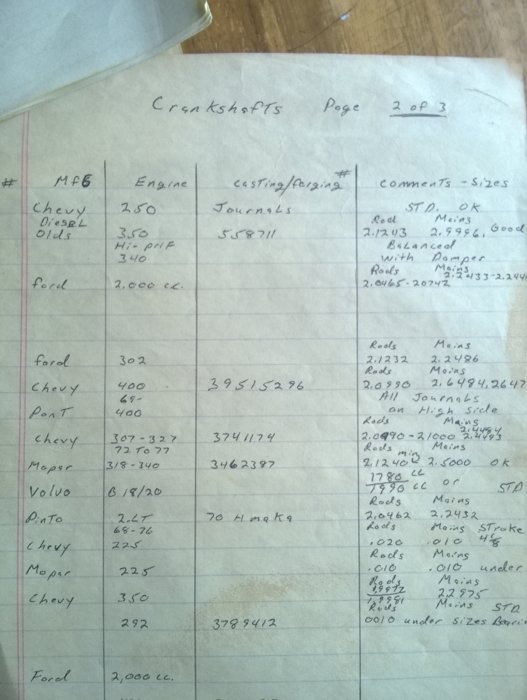 Crankshafts Page 2 of 3
# MFG Engine casting/forging # comments - Sizes
Chevy 250 Journals STD. OK
Diesel Rod Mains
Olds 350 558711 2.1243 2.9996. Good
Hi-perf Balanced
340 with Damper
Rods Mains
ford 2,000 cc. 2.0465-20742 2.2433-2.244
Rods Mains
ford 302 2.1232 2.2486
Rods Mains
Chevy 400 39515296 2.0990 2.6484,2647
69- All Journals
Pont 400 on High side
Rods Mains
2.4484
Chevy 307-327 3741174 2.0990-21000 2.4493
72 To 77 Rods Mains
Mopar 318-340 3462387 2.1240 2.5000 OK
1780 cc or
Volvo B 18/20 1990 cc STD
Rods Mains
Pinto 2.LT 70 H maka 2.0462 2.2432
68-76 Rods Mains Stroke
Chevy 225 .020 .010 4 1/8
Rods Mains
Mopar 225 .010 .010 under
Rods Mains
Chevy 350 22975
Rods Mains STD
292 3789412 0010 under sizes
Ford 2,000 cc.